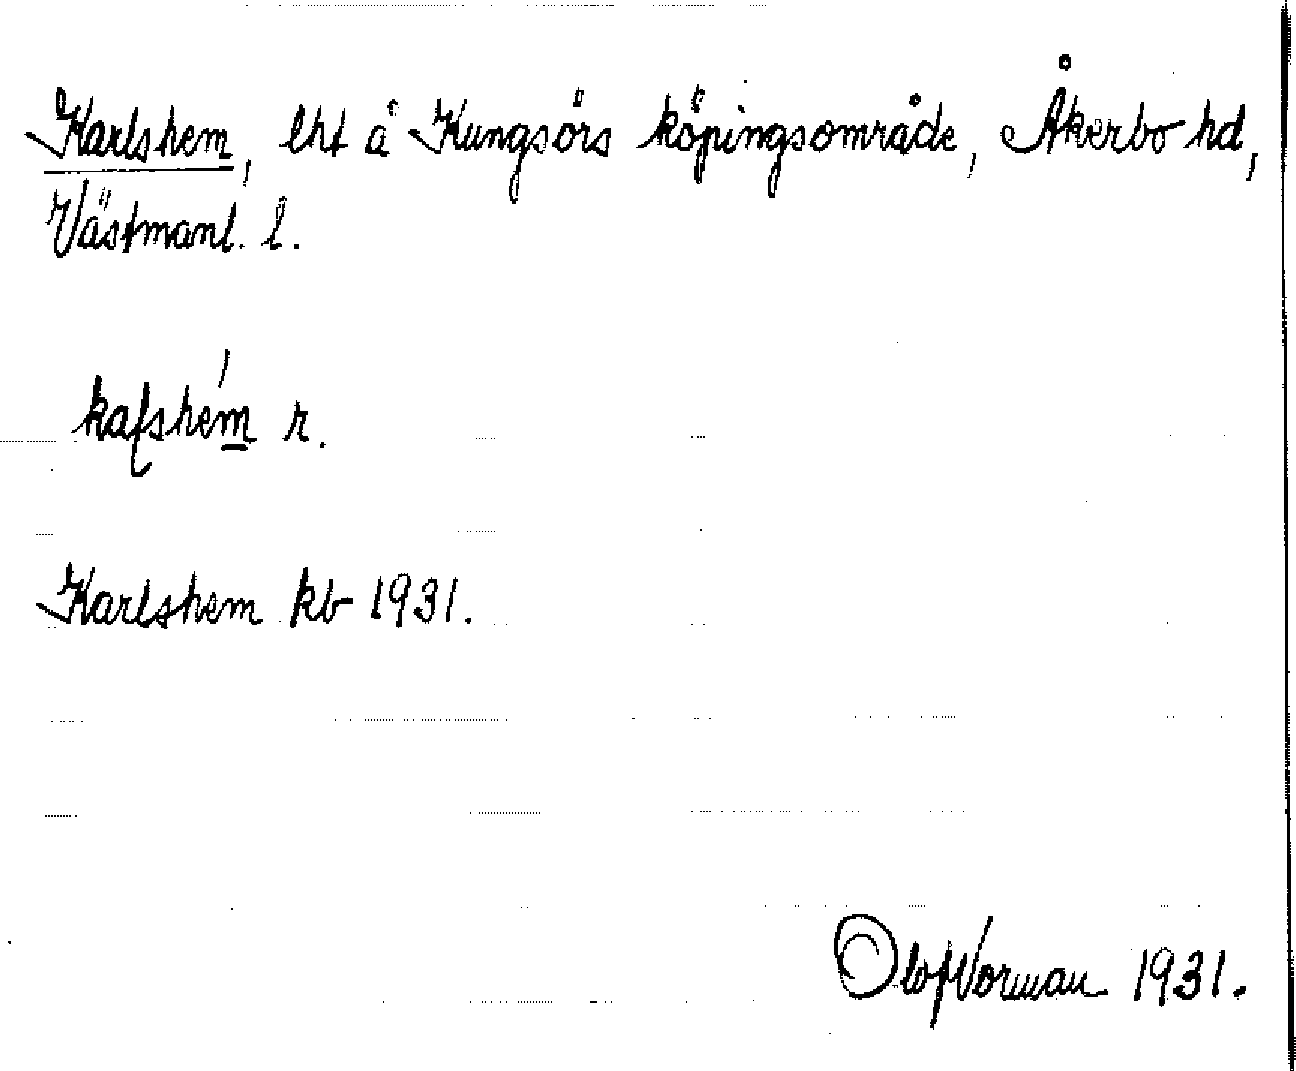 Karlshem, lht å Kungsörs köpingsområde, Åkerbo hd,
Västmanl. l.
kaʃshém r.
Karlshem kb 1931.
Olof Norman 1931.